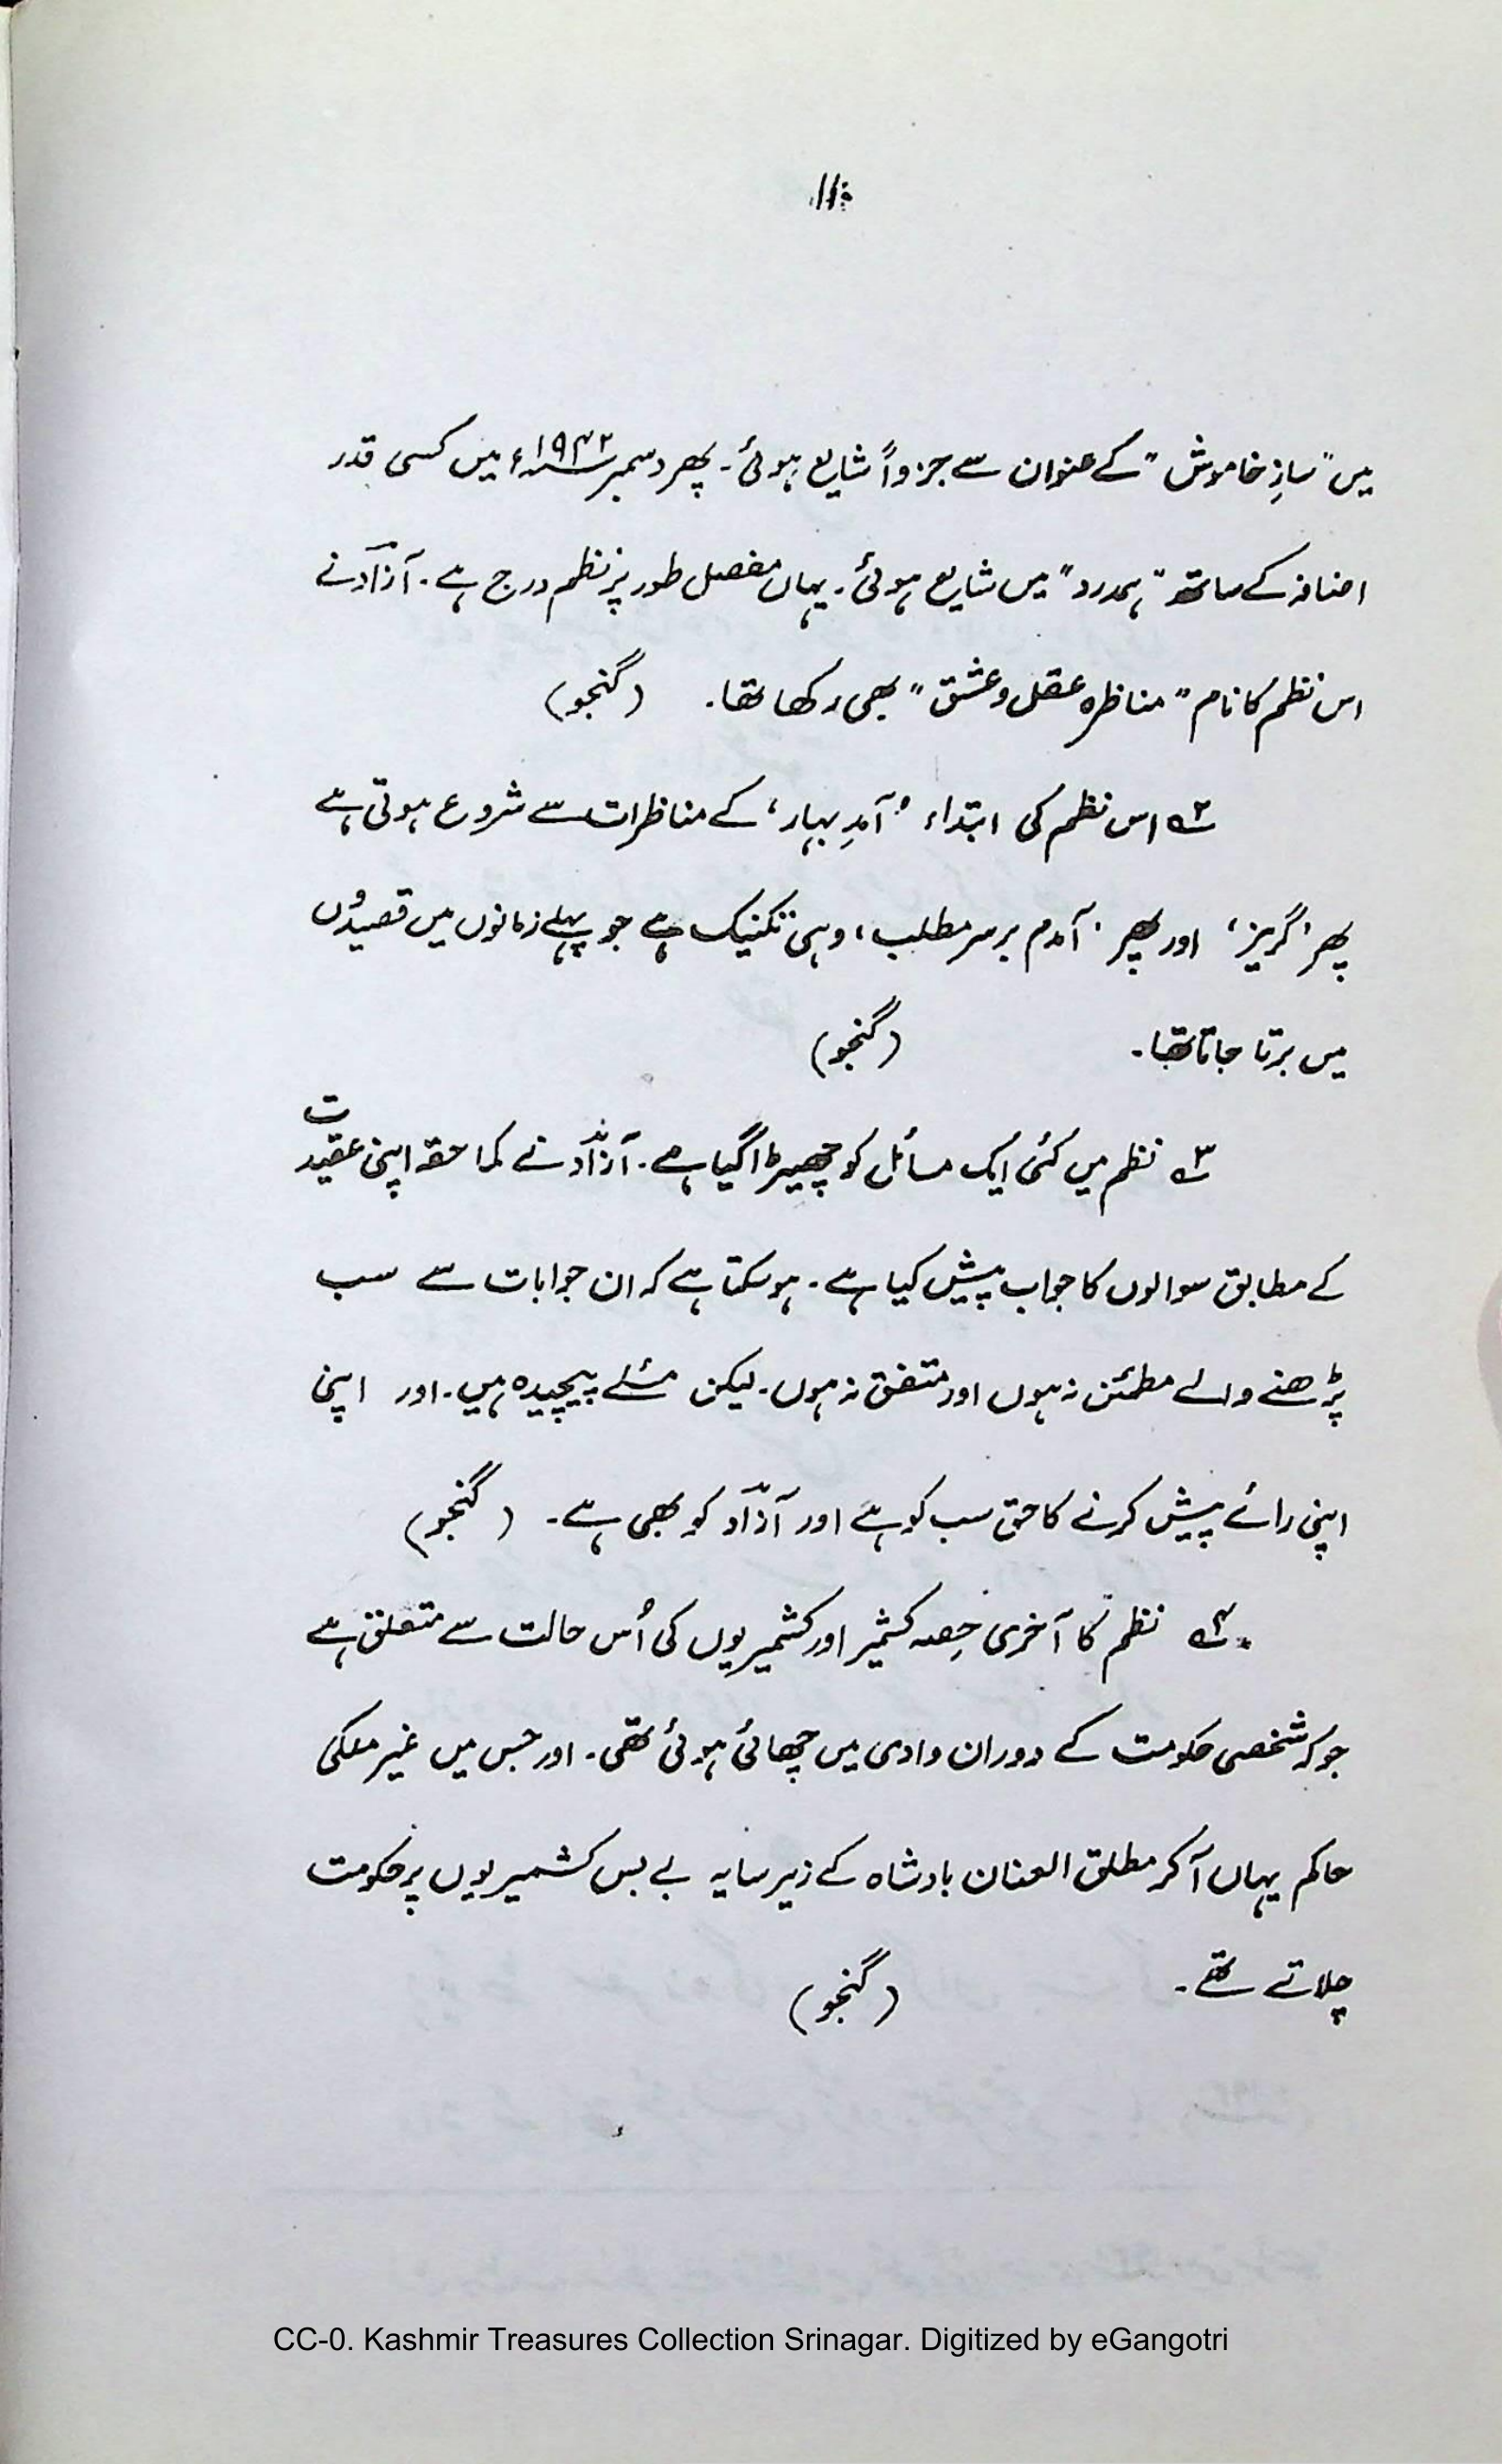 میں "سازِ خاموش" کے عنوان سے جزواً شایع ہوئی۔ پھر دسمبر ۱۹۴۲ء میں کسی قدر
اضافہ کے ساتھ "ہمدرد" میں شایع ہوئی۔ یہاں مفصل طور پر نظم درج ہے۔ آزاد نے
اس نظم کا نام "مناظرہ عقل و عشق" بھی رکھا تھا۔ (گنجو)
۲؎ اس نظم کی ابتداء 'آمدِ بہار' کے مناظرات سے شروع ہوتی ہے
پھر 'گریز' اور پھر 'آمدم برسر مطلب' وہی تکنیک ہے جو پہلے زمانوں میں قصیدوں
میں برتا جاتا تھا۔ (گنجو)
۳؎ نظم میں کئی ایک مسائل کو چھیڑا گیا ہے۔ آزاد نے کما حقہ اپنی عقیدت
کے مطابق سوالوں کا جواب پیش کیا ہے۔ ہوسکتا ہے کہ ان جوابات سے سب
پڑھنے والے مطمئن نہ ہوں اور متفق نہ ہوں۔ لیکن مسئلے پیچیدہ ہیں۔ اور اپنی
اپنی رائے پیش کرنے کا حق سب کو ہے اور آزاد کو بھی ہے۔ (گنجو)
۴؎ نظم کا آخری حِصہ کشمیر اور کشمیریوں کی اُس حالت سے متعلق ہے
جو کہ شخصی حکومت کے دوران وادی میں چھائی ہوئی تھی۔ اور جس میں غیر ملکی
حاکم یہاں آکر مطلق العنان بادشاہ کے زیر سایہ بے بس کشمیریوں پر حکومت
چلاتے تھے۔ (گنجو)
CC-0. Kashmir Treasures Collection Srinagar. Digitized by eGangotri